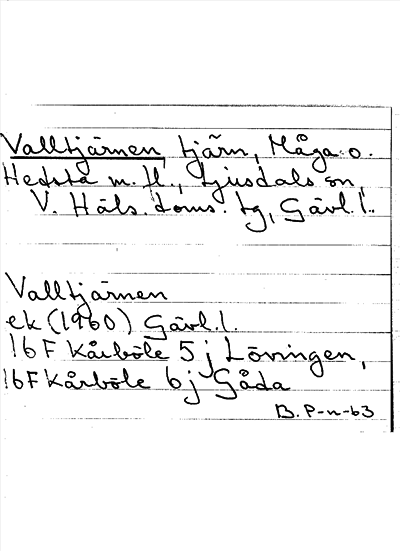 Valltjärnen, tjärn, Måga o.
Hedsta m. fl., Ljusdals sn,
V. Häls. doms. tg, Gävl. l.
Valltjärnen
ek (1960) Gävl. l.
16F Kårböle 5 j Lövringen,
16F Kårböle 6 j Gåda
B. P-n-63